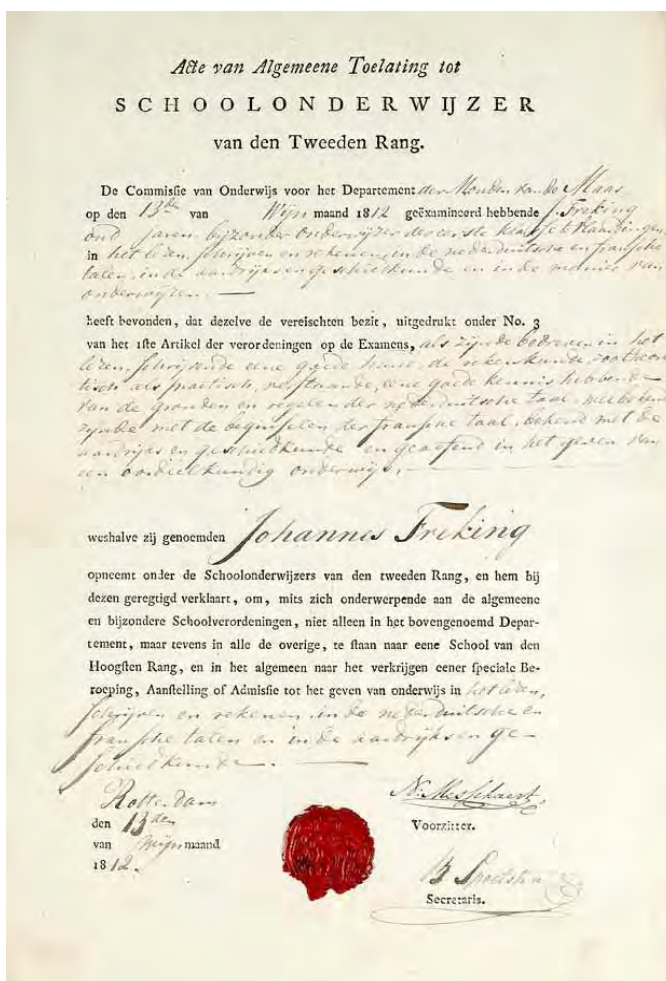 Acte van Algemeene Toelating tot
SCHOOLONDERWIJZER
van den Tweeden Rang.
De Commisſie van Onderwijs voor het Departement der Monden van de Maas
op den 13de van Wijn maand 1812 geëxamineerd hebbende J. Freking
oud jaren, bijzonder onderwijzer der eerste klasse te Vlaardingen,
in het lezen, schrijven en rekenen, in de nederduitsche en fransche
talen, in de aardrijks en geschiedkunde en in de manier van
onderwijzen. —
heeft bevonden, dat dezelve de vereischten bezit, uitgedrukt onder No. 3
van het 1ſte Artikel der verordeningen op de Examens, als zijnde bedreven in het
lezen, schrijvende eene goede hand, de rekenkunde, zoo theore
tisch als practisch, verstaande, eene goede kennis hebbende
van de gronden en regelen der nederduitsche taal,
zijnde met de beginselen der fransche taal, bekend met de
aardrijks en geschiedkunde en geoefend in het geven van
een oordeelkundig onderwijs. —
weshalve zij genoemden Johannes Freking
opneemt onder de Schoolonderwijzers van den tweeden Rang, en hem bij
dezen geregtigd verklaart, om, mits zich onderwerpende aan de algemeene
en bijzondere Schoolverordeningen, niet alleen in het bovengenoemd Depar-
tement, maar tevens in alle de overige, te ſtaan naar eene School van den
Hoogſten Rang, en in het algemeen naar het verkrijgen eener ſpeciale Be-
roeping, Aanſtelling of Admisſie tot het geven van onderwijs in het lezen,
schrijven en rekenen in de nederduitsche en
fransche talen en in de aardrijks en ge-
schiedkunde. —
Rotterdam
den 13den
van Wijnmaand
1812.
N. Messchaert
Voorzitter.
Secretaris.